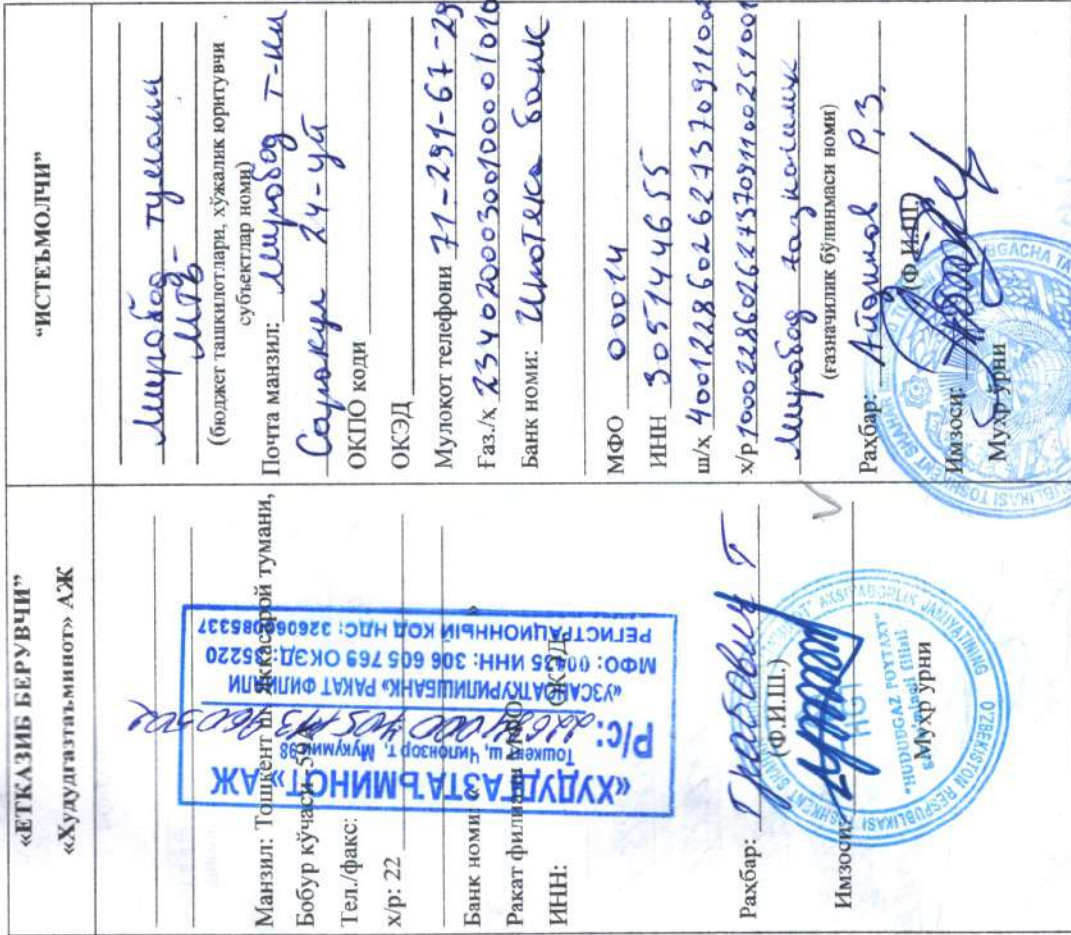 «ЕТКАЗИБ БЕРУВЧИ"
«Худудгазтаъминот» АЖ
Манзил: Тошкент ш. Яккасарой тумани,
Бобур кўчаси 59А
Тел./факс:
х/р: 22
Банк номи:
Ракат филиали МФО:
ИНН: ОКЭД
«ХУДУДГАЗТАЪМИНОТ» АЖ
Тошкент ш, Чилонзор т, Мукумий 98
Р/с: 22684000 705 113 960502
«УЗСАНОАТКУРИЛИШБАНК» РАКАТ ФИЛИАЛИ
МФО: 00435 ИНН: 306 605 769 ОКЭД: 35220
РЕГИСТРАЦИОННЫЙ КОД НДС: 326060085337
Раҳбар: Грабович Т
(Ф.И.Ш.)
Имзоси:
Муҳр ўрни
O'ZBEKISTON RESPUBLIKASI
AKSIYADORLIK JAMIYATINING
HGT
"HUDUDGAZ POYTAXT"
filiali
"ИСТЕЪМОЛЧИ"
Миробод тумани
МТБ-
(бюджет ташкилотлари, хўжалик юритувчи
субъектлар номи)
Почта манзил: Миробод т-ни
Сарикул 24-уй
ОКПО коди
ОКЭД
Мулокот телефони 71-291-67-29
Ғаз./х 23402000300100001010
Банк номи: Ипотека банк
МФО 00014
ИНН 305144655
ш/х 400122860262737091100
х/р 100022860262737091100251001
Миробод газначилик
(ғазначилик бўлинмаси номи)
Раҳбар: Айдинов Р,З,
(Ф.И.Ш)
Имзоси:
Муҳр ўрни